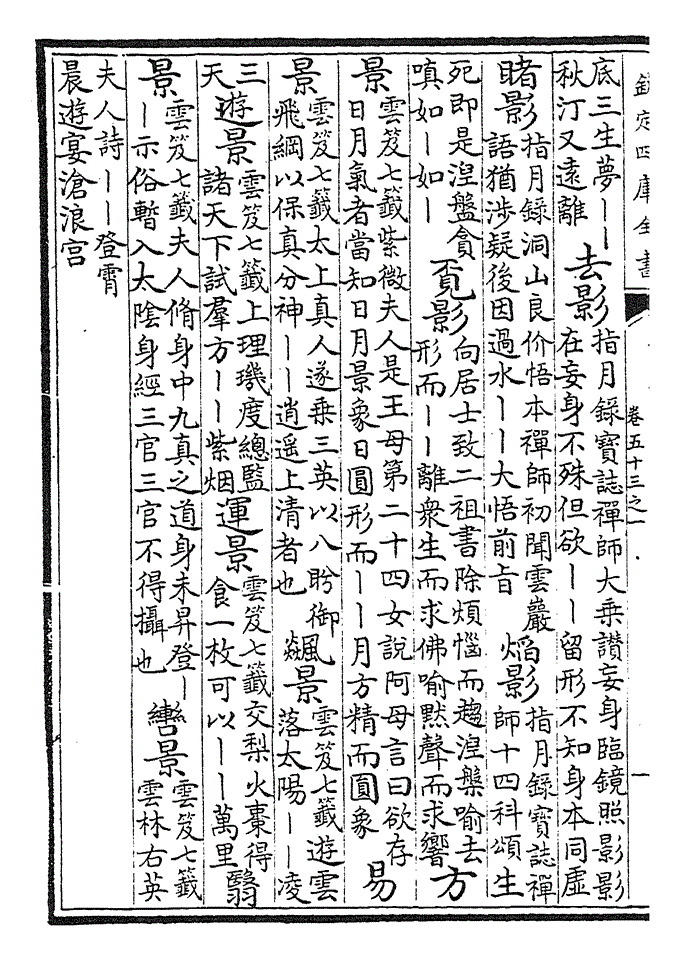 欽定四庫全書
卷五十三之一
一
底三生夢｜｜
秋汀又遠離
去影
指月錄寶誌禪師大乗讃妄身臨鏡照影影
在妄身不殊但欲｜｜留形不知身本同虚
睹影
指月錄洞山良价悟本禪師初聞雲巖
語猶涉疑後因過水｜｜大悟前旨
焰影
指月錄寶誌禪
師十四科頌生
死即是涅盤貪
嗔如｜如｜
覓影
向居士致二祖書除煩惱而趨涅槃喻去
形而｜｜離衆生而求佛喻黙聲而求響
方
景
雲笈七籤紫微夫人是王母第二十四女說阿母言曰欲存
日月氣者當知日月景象日圓形而｜｜月方精而圓象
易
景
雲笈七籤太上真人遂乗三英以八盻御
飛綱以保真分神｜｜逍遥上清者也
飊景
雲笈七籤遊雲
落太陽｜｜凌
三
天
遊景
雲笈七籤上理璣度總監
諸天下試羣方｜｜紫烟
運景
雲笈七籤交梨火棗得
食一枚可以｜｜萬里
翳
景
雲笈七籤夫人脩身中九真之道身未昇登｜
｜示俗暫入太隂身經三官三官不得攝也
轡景
雲笈七籤
雲林右英
夫人詩｜｜登霄
晨遊宴滄浪宫